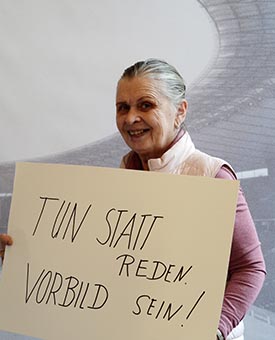 TUN STATT
REDEN.
VORBILD SEIN!